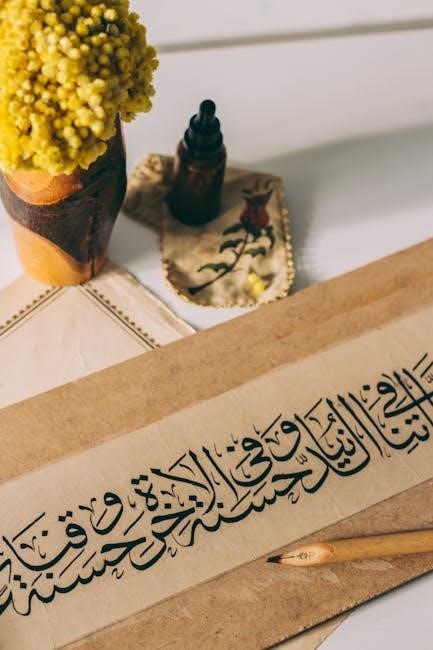 اتنا في الدنيا حسنة وفي الاخرة حسنة وقنا